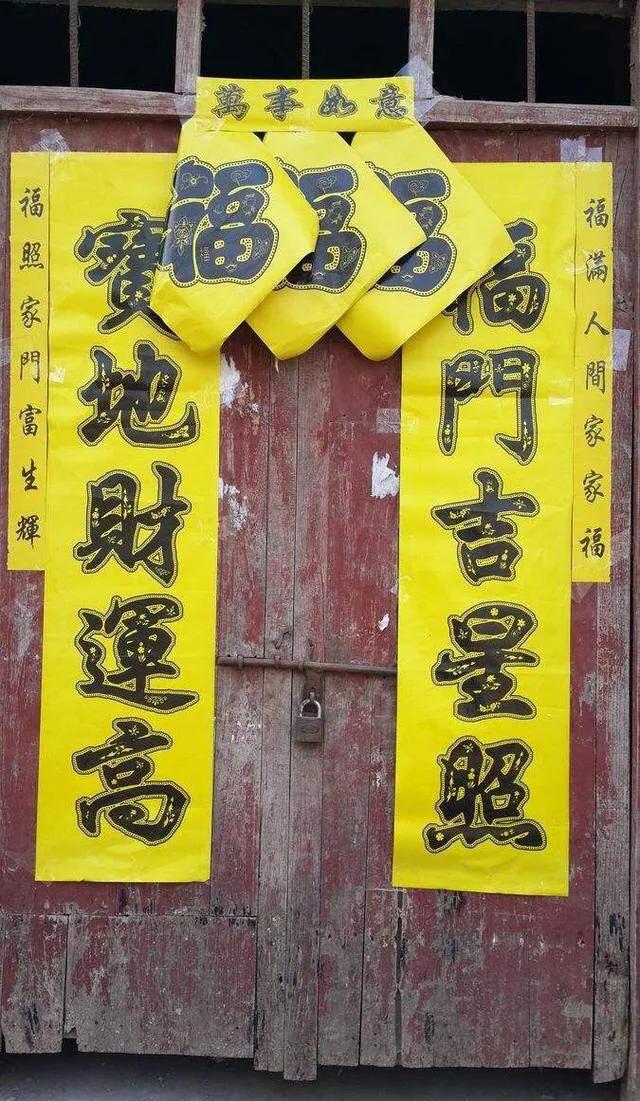 萬事如意
福
福
福
福滿人間家家福
福門吉星照
寶地財運高
福照家門富生輝